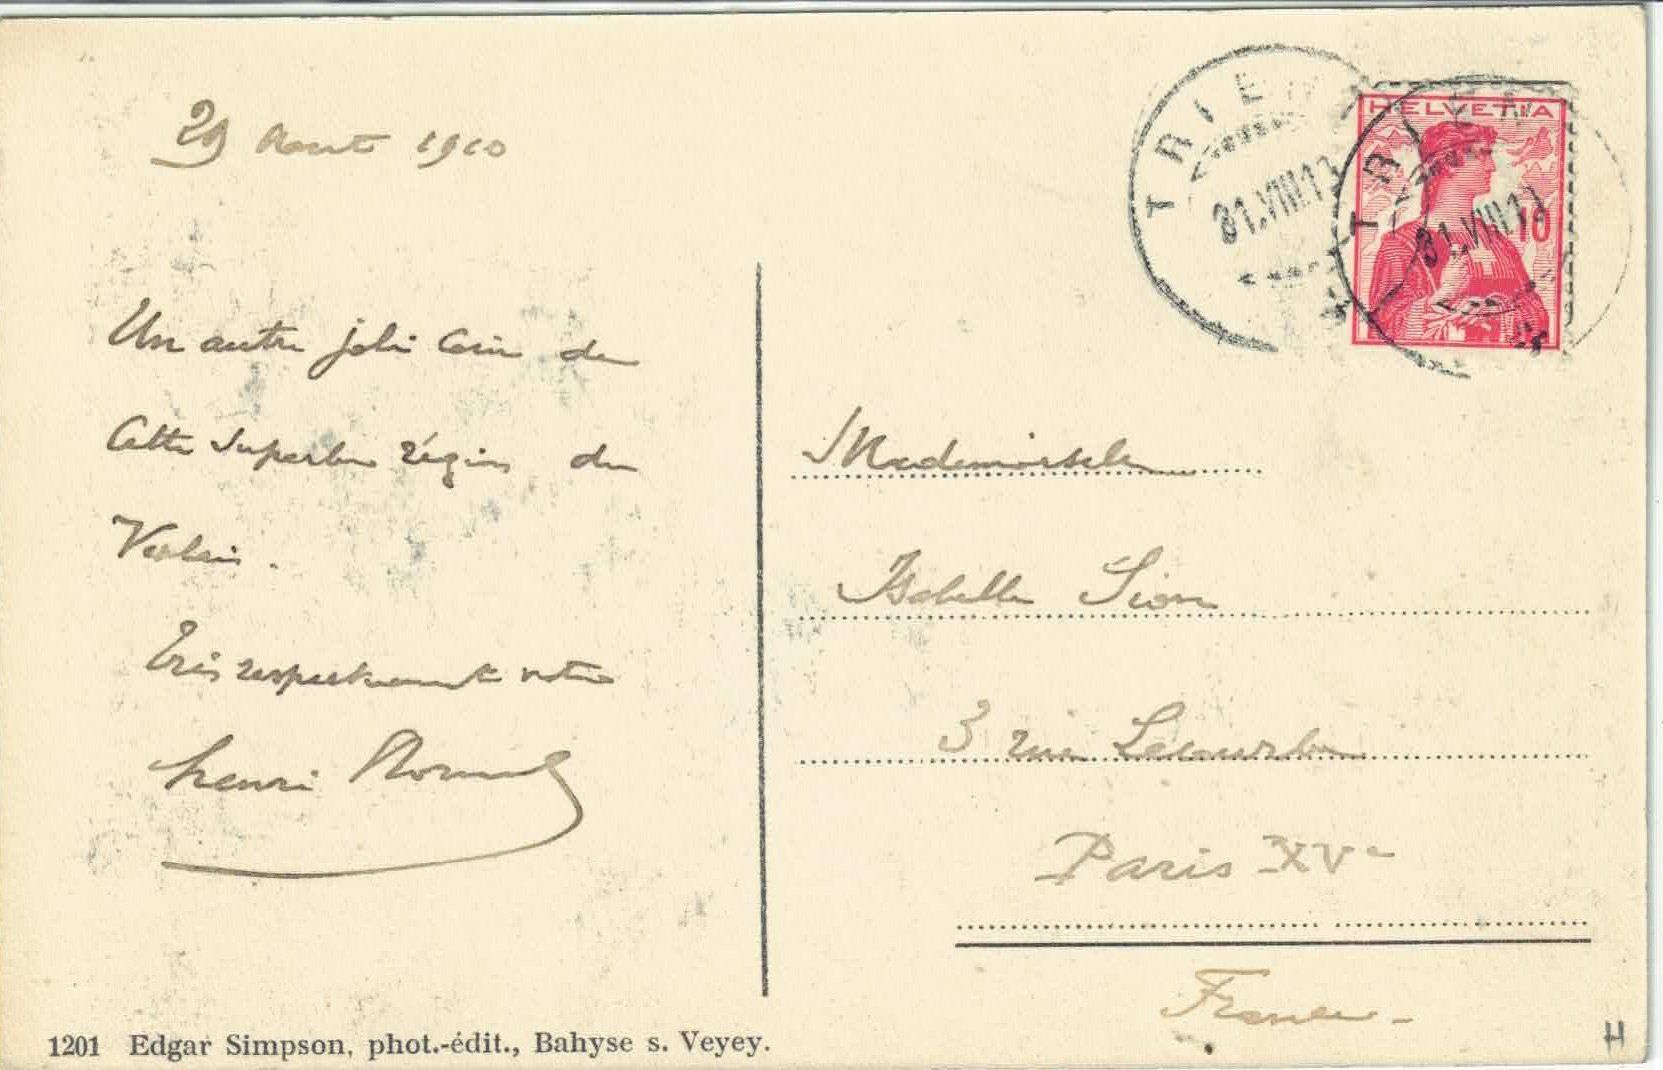 29 Aout 1910
Un autre joli Coin de
Cette Superbe région du
Valais.
Très respectueusement votre
henri
TRIENT
31.VIII.10
HELVETIA
10
TRIENT
31.VIII.10
Mademoiselle
Isabelle Sion
3 rue Lecourbe
Paris XVe
France-
1201 Edgar Simpson, phot.-édit., Bahyse s. Veyey.
H